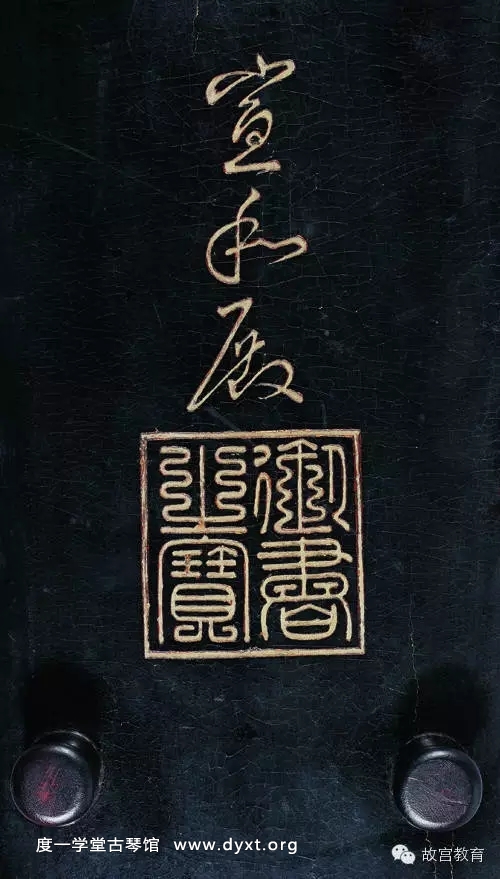 宣和殿
御書
之寶
度一学堂古琴馆 www.dyxt.org
故宫教育